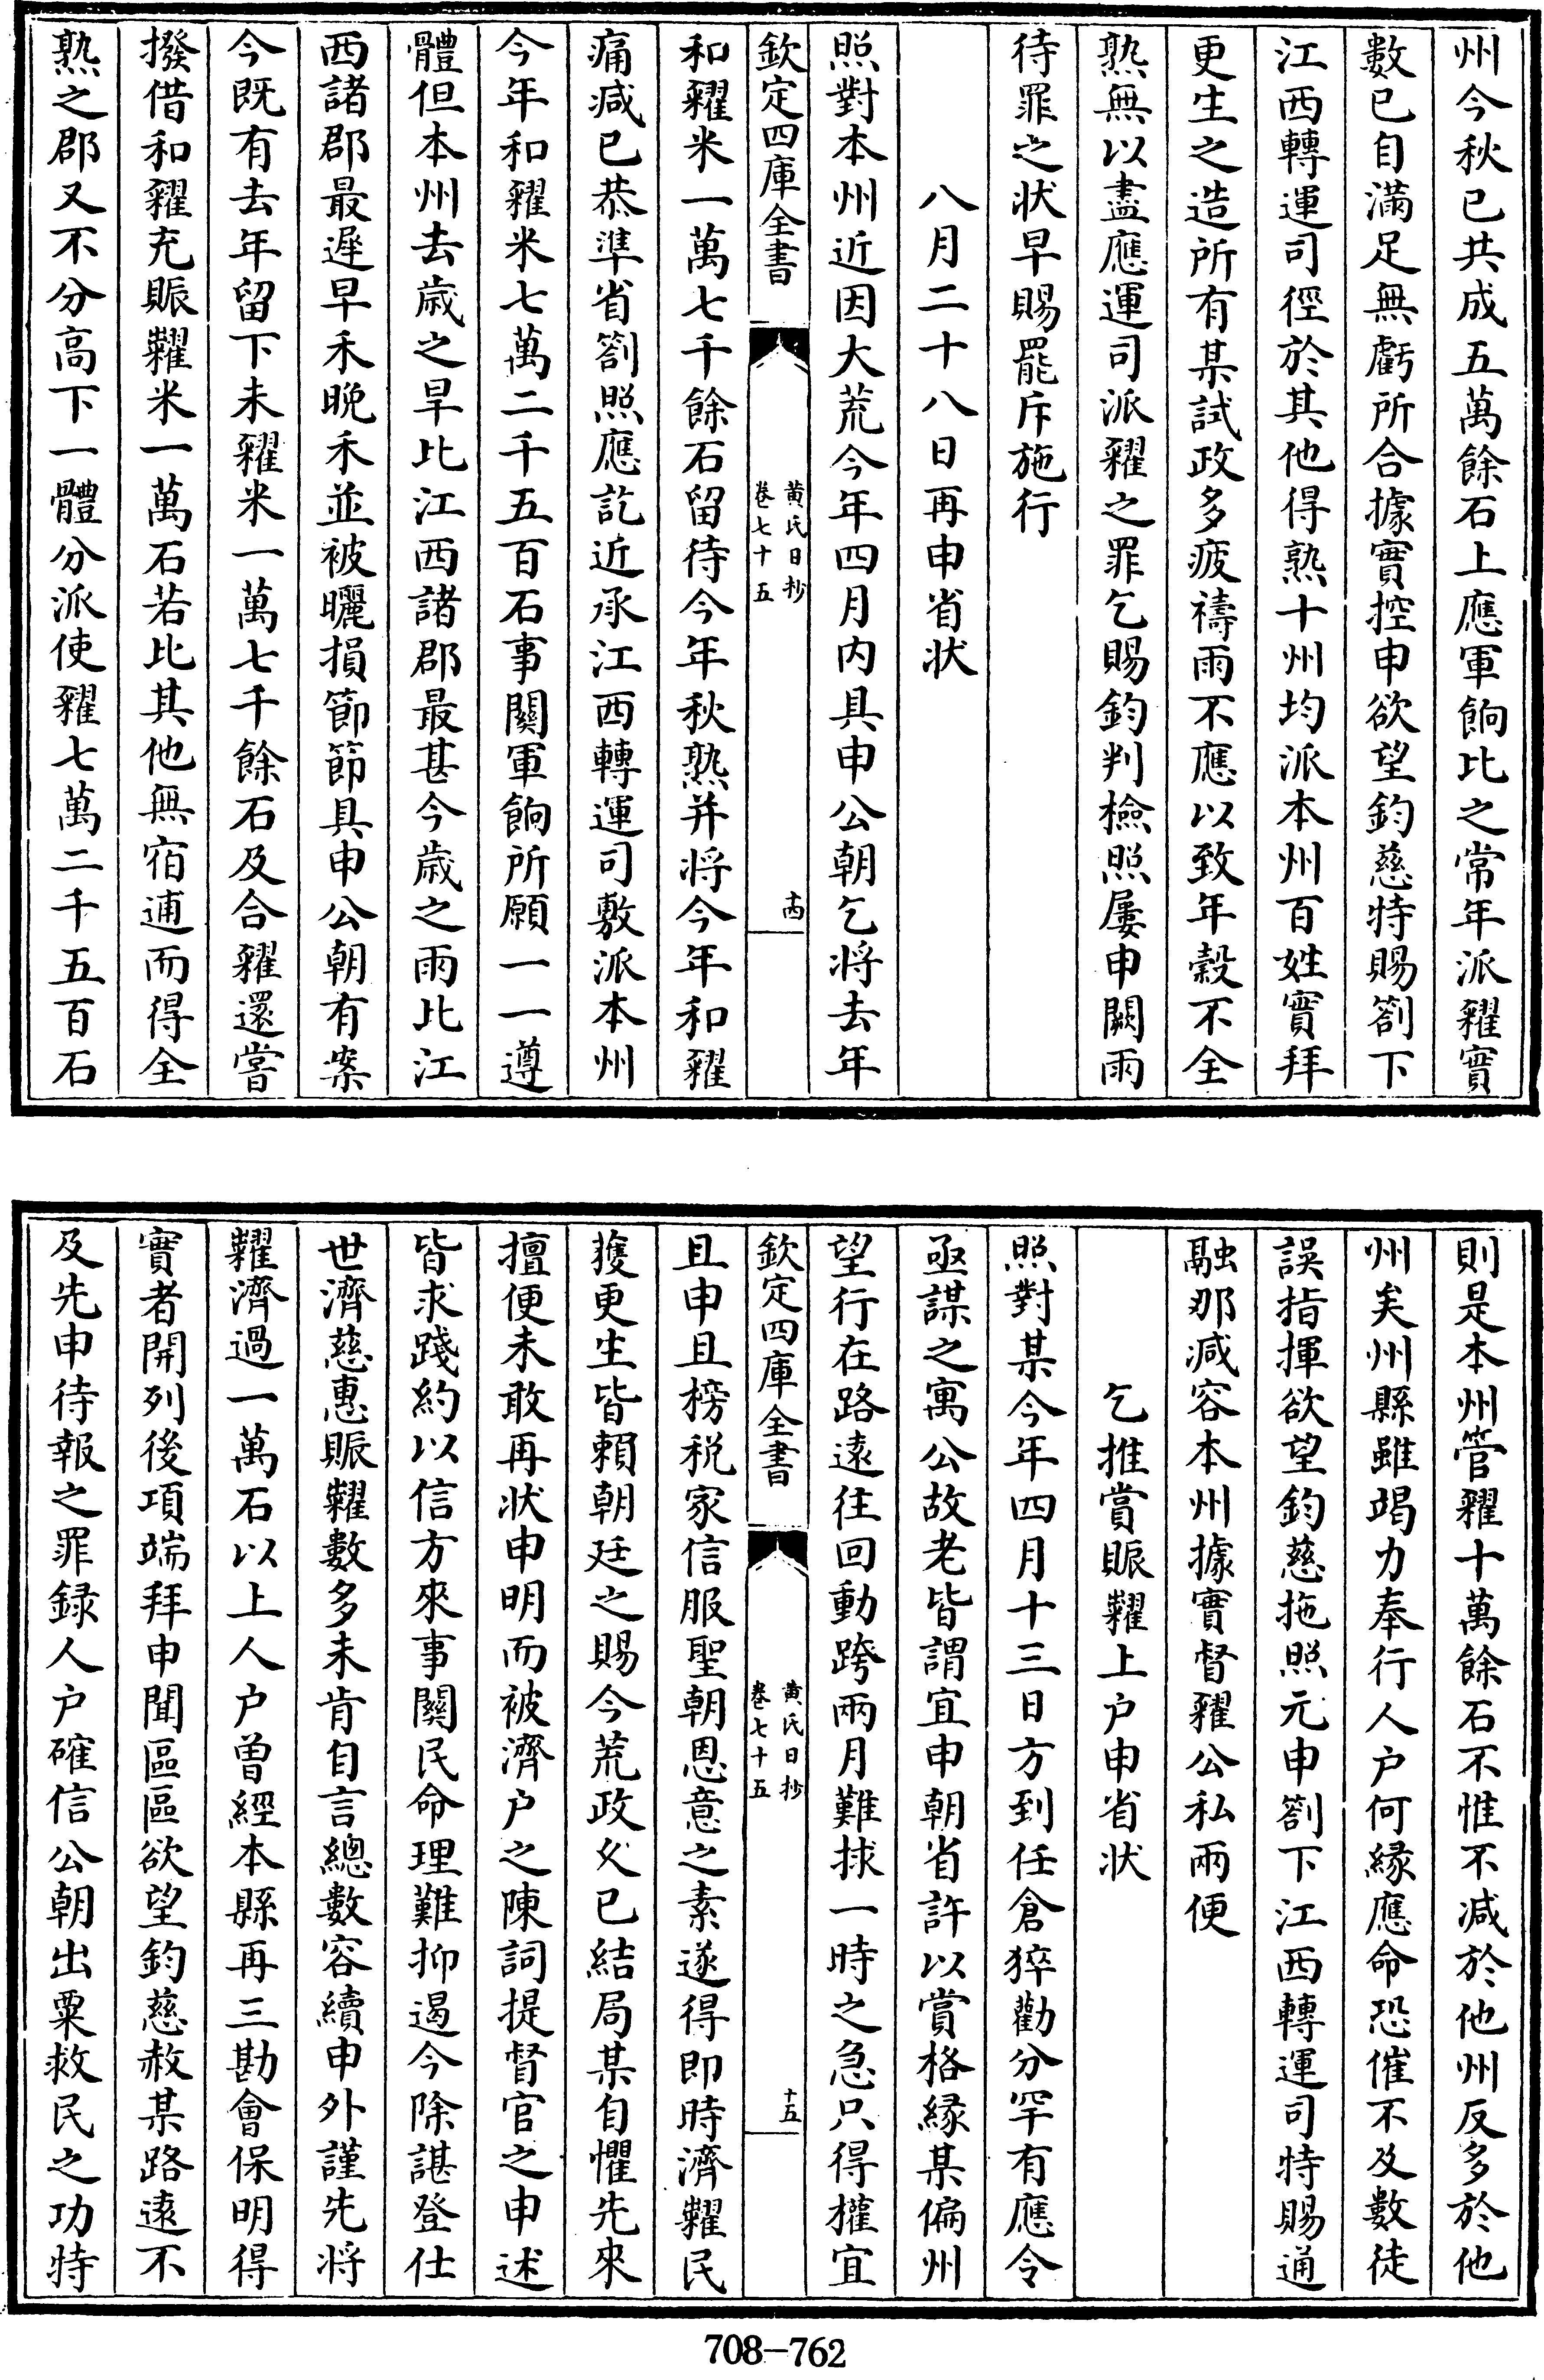 州今秋已共成五萬餘石上應軍餉比之常年派糴實
數已自滿足無虧所合據實控申欲望鈞慈特賜劄下
江西轉運司徑於其他得熟十州均派本州百姓實拜
更生之造所有某試政多疲禱雨不應以致年穀不全
熟無以盡應運司派糴之罪乞賜鈞判檢照屢申闕雨
待罪之狀早賜罷斥施行
八月二十八日再申省狀
照對本州近因大荒今年四月内具申公朝乞將去年
欽定四庫全書
黄氏日抄
卷七十五
十四
和糴米一萬七千餘石留待今年秋熟并將今年和糴
痛減已恭準省劄照應訖近承江西轉運司敷派本州
今年和糴米七萬二千五百石事關軍餉所願一一遵
體但本州去歲之旱比江西諸郡最甚今歲之雨比江
西諸郡最遲早禾晚禾並被曬損節節具申公朝有案
今既有去年留下未糴米一萬七千餘石及合糴還嘗
撥借和糴充賑糶米一萬石若比其他無宿逋而得全
熟之郡又不分高下一體分派使糴七萬二千五百石
則是本州管糴十萬餘石不惟不減於他州反多於他
州矣州縣雖竭力奉行人户何緣應命恐催不及數徒
誤指揮欲望鈞慈拖照元申劄下江西轉運司特賜通
融那減容本州據實督糴公私兩便
乞推賞賑糶上户申省狀
照對某今年四月十三日方到任倉猝勸分罕有應令
亟謀之寓公故老皆謂宜申朝省許以賞格緣某偏州
望行在路遠往回動跨兩月難捄一時之急只得權宜
欽定四庫全書
黄氏日抄
卷七十五
十五
且申且榜税家信服聖朝恩意之素遂得即時濟糶民
獲更生皆賴朝廷之賜今荒政久已結局某自懼先來
擅便未敢再狀申明而被濟户之陳詞提督官之申述
皆求踐約以信方來事關民命理難抑遏今除諶登仕
世濟慈惠賑糶數多未肯自言總數容續申外謹先將
糶濟過一萬石以上人户曾經本縣再三勘會保明得
實者開列後項端拜申聞區區欲望鈞慈赦某路遠不
及先申待報之罪録人户確信公朝出粟救民之功特
708-762